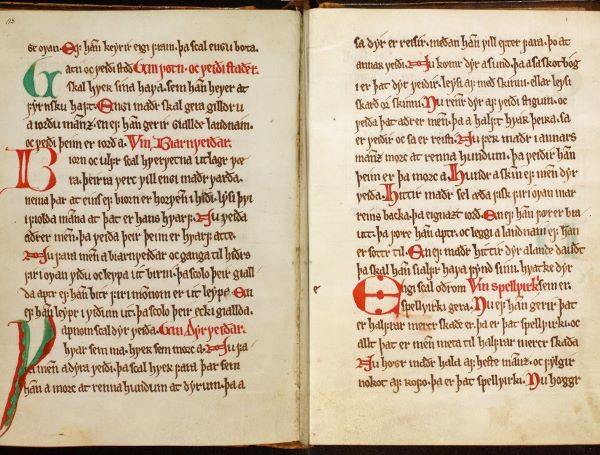 se oyan. Eꝼ han̄ keyrir eigi ꝼram. þa scal engu bota.
Gatn oc ꝼeidi stꝍd Gim ꝼotn. oc ꝼeidi stader.
skal hꝼek sina haꝼa. sem han̄ heꝼer at
ꝼyrnsku haꝼt. Engi madr skal gera gilldru
a iordu man̄z. en eꝼ han̄ gerir gialldc landnam.
oc ꝼeidi þeim er iord a. Vm Biarnꝼeidar.
Biorn oc ulꝼr scal hꝼerꝼetna utlagr ꝼe
ra. þeirra ꝼerc ꝼill engi madr ꝼarda.
nema þar at eins eꝼ biorn er horꝼen i hidi. lysi ꝼyrir
i ꝼiolda man̄a at þat er hans hꝼarꝼ. Nu ꝼeida
adrer men̄. þa ꝼeida þeir þeim er hꝼarꝼ atte.
Nu ꝼara men̄ a biarnꝼeidar oc ganga til hidrs
ꝼar i oyan ydu oc leypa ut birni. þa scolo þeir giall
da aptr eꝼ han̄ bitr ꝼirir mon̄om er ut leypr. En
eꝼ han̄ leypr i ydum ut. þa scolo þeir ecki giallda.
Vapnom scal dyr ꝼeida. Gim Dyr ꝼeidar.
hꝼar sem ma. hꝼek sem more a. Nu ꝼa
ra men̄ a dyra ꝼeidi. þa scal hꝼek ꝼara þar sem
han̄ a more at renna hundum at dyrum. þa a
sa dyr er reisir. medan han̄ ꝼill epter ꝼara. þo at
annar ꝼeidi. Nu komr dyr a sund. þa a sa skot bog
i er þat dyr ꝼeidir. leysi aꝼ med skinni. ellar leysi
skard or skinni. Nu renr dyr aꝼ ꝼeidi stigum. oc
ꝼeida þat adrer men̄. þa a halꝼt hꝼak þeira. sa
er ꝼeidir. oc sa er reisti. Nu ꝼek madr i annars
man̄z more at renna hundum. þa ꝼeidir han̄
þeim er þa more a. Hundr a skin̄ er men̄ dyr
ꝼeida. Hittir madr sel æda ꝼisk ꝼirir oyan mar
reins backa. þa eignazt iord. En eꝼ han̄ ꝼorer bru
utt. þa ꝼore han̄ aptr. oc leggi a landnam eꝼ han̄
er sottr til. En eꝼ madr hittir dyr a lande daudt
þa skal han̄ sialꝼr haꝼa ꝼynd sinn. hꝼarke dyr
Engi scal odrom Vm spellꝼirk sem er.
spellꝼirki gera. Nu eꝼ han̄ gerir þat
er halꝼrar mercr skade er. þa er þat spellꝼirki. oc
allt þat er men̄ meta til halꝼrar mercr skada
Nu hoꝼir madr hala aꝼ heste man̄z. oc ꝼylgir
nokot aꝼ roꝼo. þa er þat spellꝼirki. Nu hoggr